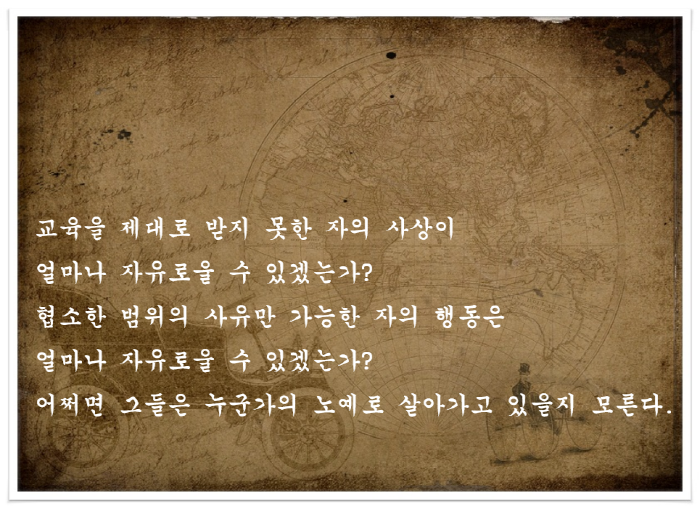 교육을 제대로 받지 못한 자의 사상이
얼마나 자유로울 수 있겠는가?
협소한 범위의 사유만 가능한 자의 행동은
얼마나 자유로울 수 있겠는가?
어쩌면 그들은 누군가의 노예로 살아가고 있을지 모른다.